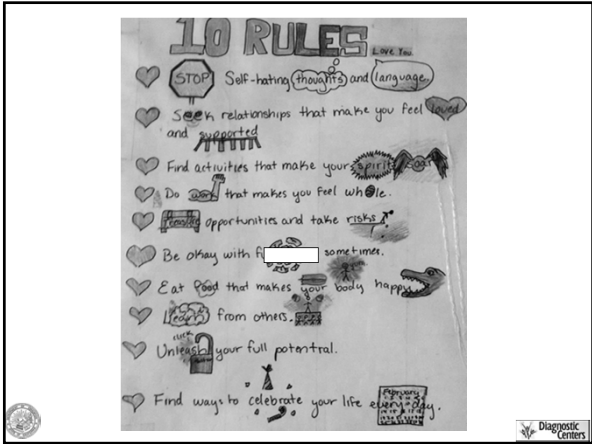 10 RULES
Love You.
STOP Self-hating thoughts and language.
Seek relationships that make you feel loved
and supported
Find activities that make your spirit soar
Do work that makes you feel whole.
opportunities and take risks
Be okay with sometimes.
Eat food that makes your body happy
Learn from others.
click
Unleash your full potential.
February
Find ways to celebrate your life every day.
Diagnostic
Centers